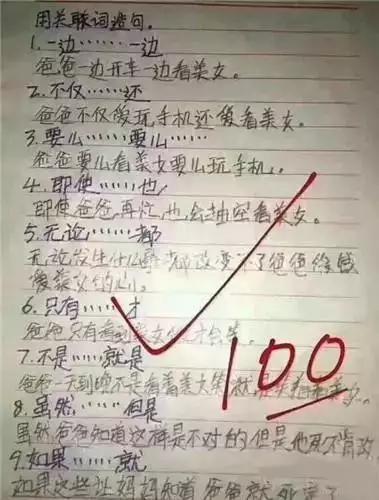 用关联词造句.
1.一边……一边
爸爸一边开车一边看美女。
2.不仅……还
爸爸不仅爱玩手机还爱看美女。
3.要么……要么……
爸爸要么看美女要么玩手机。
4.即使……也,
即使爸爸再忙,也会抽空看美女。
5.无论……都
无论发生什么都改变不了爸爸
爱美女的心。
6.只有……才
爸爸只有看到美女才会笑。
7.不是……就是
爸爸一天到晚不是看着美女笑就是
8.虽然……但是
虽然爸爸知道这样是不对的但是他死不悔改。
9.如果……就
如果这些让妈妈知道爸爸就死定了
100